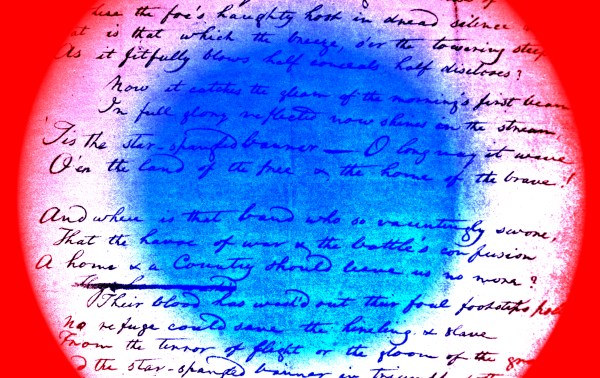 the foe's haughty host in dread silence
is that which the breeze, o'er the towering steep
As it fitfully blows half conceals half discloses?
Now it catches the gleam of the morning's first beam
In full glory reflected now shines in the stream
'Tis the star-spangled banner — O long may it wave
O'er the land of the free & the home of the brave!
And where is that band who so vauntingly swore,
That the havoc of war & the battle's confusion
A home & a Country should leave us no more?
Their blood has wash'd out their foul footsteps
No refuge could save the hireling & slave
From the terror of flight or the gloom of the
the star-spangled banner in